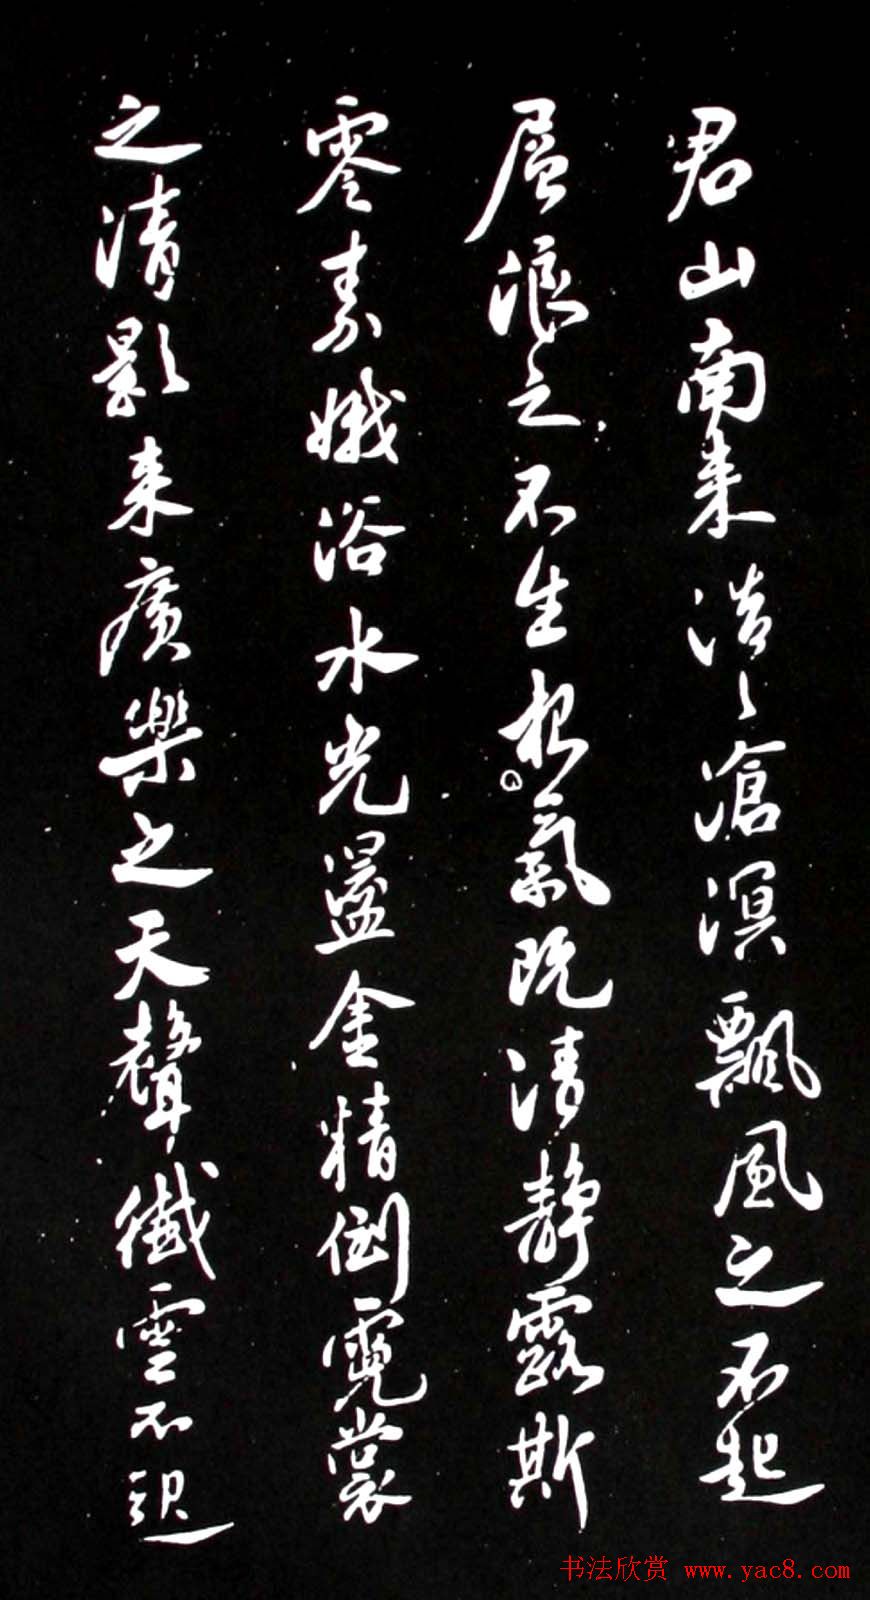 君山南来浩々滄溟飄風之不起
層浪之不生夜氣既清静露斯
零素娥浴水光盪金精倒霓裳
之清影来廣樂之天聲纖雲不
书法欣赏 www.yac8.com